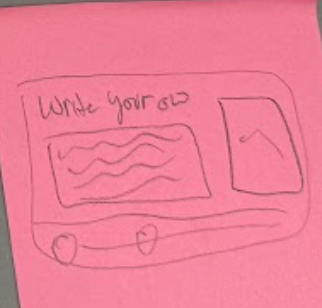 Write your own